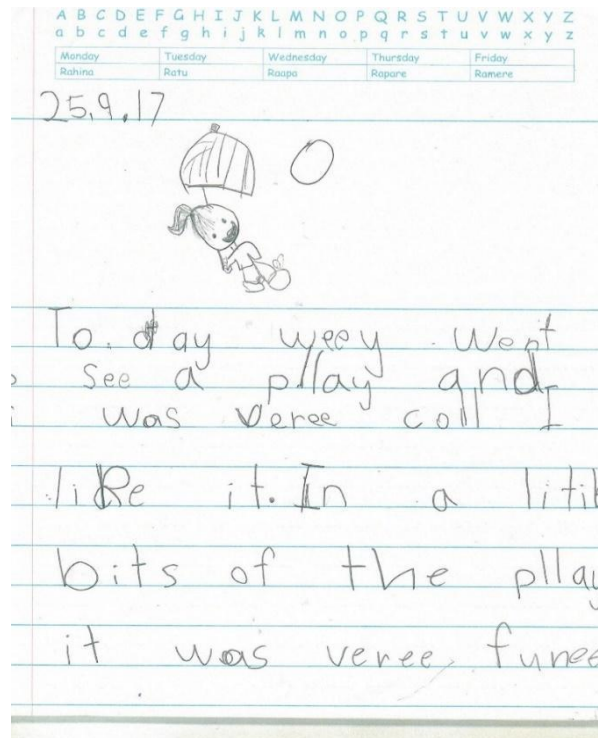 A B C D E F G H I J K L M N O P Q R S T U V W X Y Z
a b c d e f g h i j k l m n o p q r s t u v w x y z
Monday Tuesday Wednesday Thursday Friday
Rahina Ratu Raapa Rapare Ramere
25.9.17
To.day weey went
see a pllay and
was veree coll I
like it. In a
bits of the
it was veree